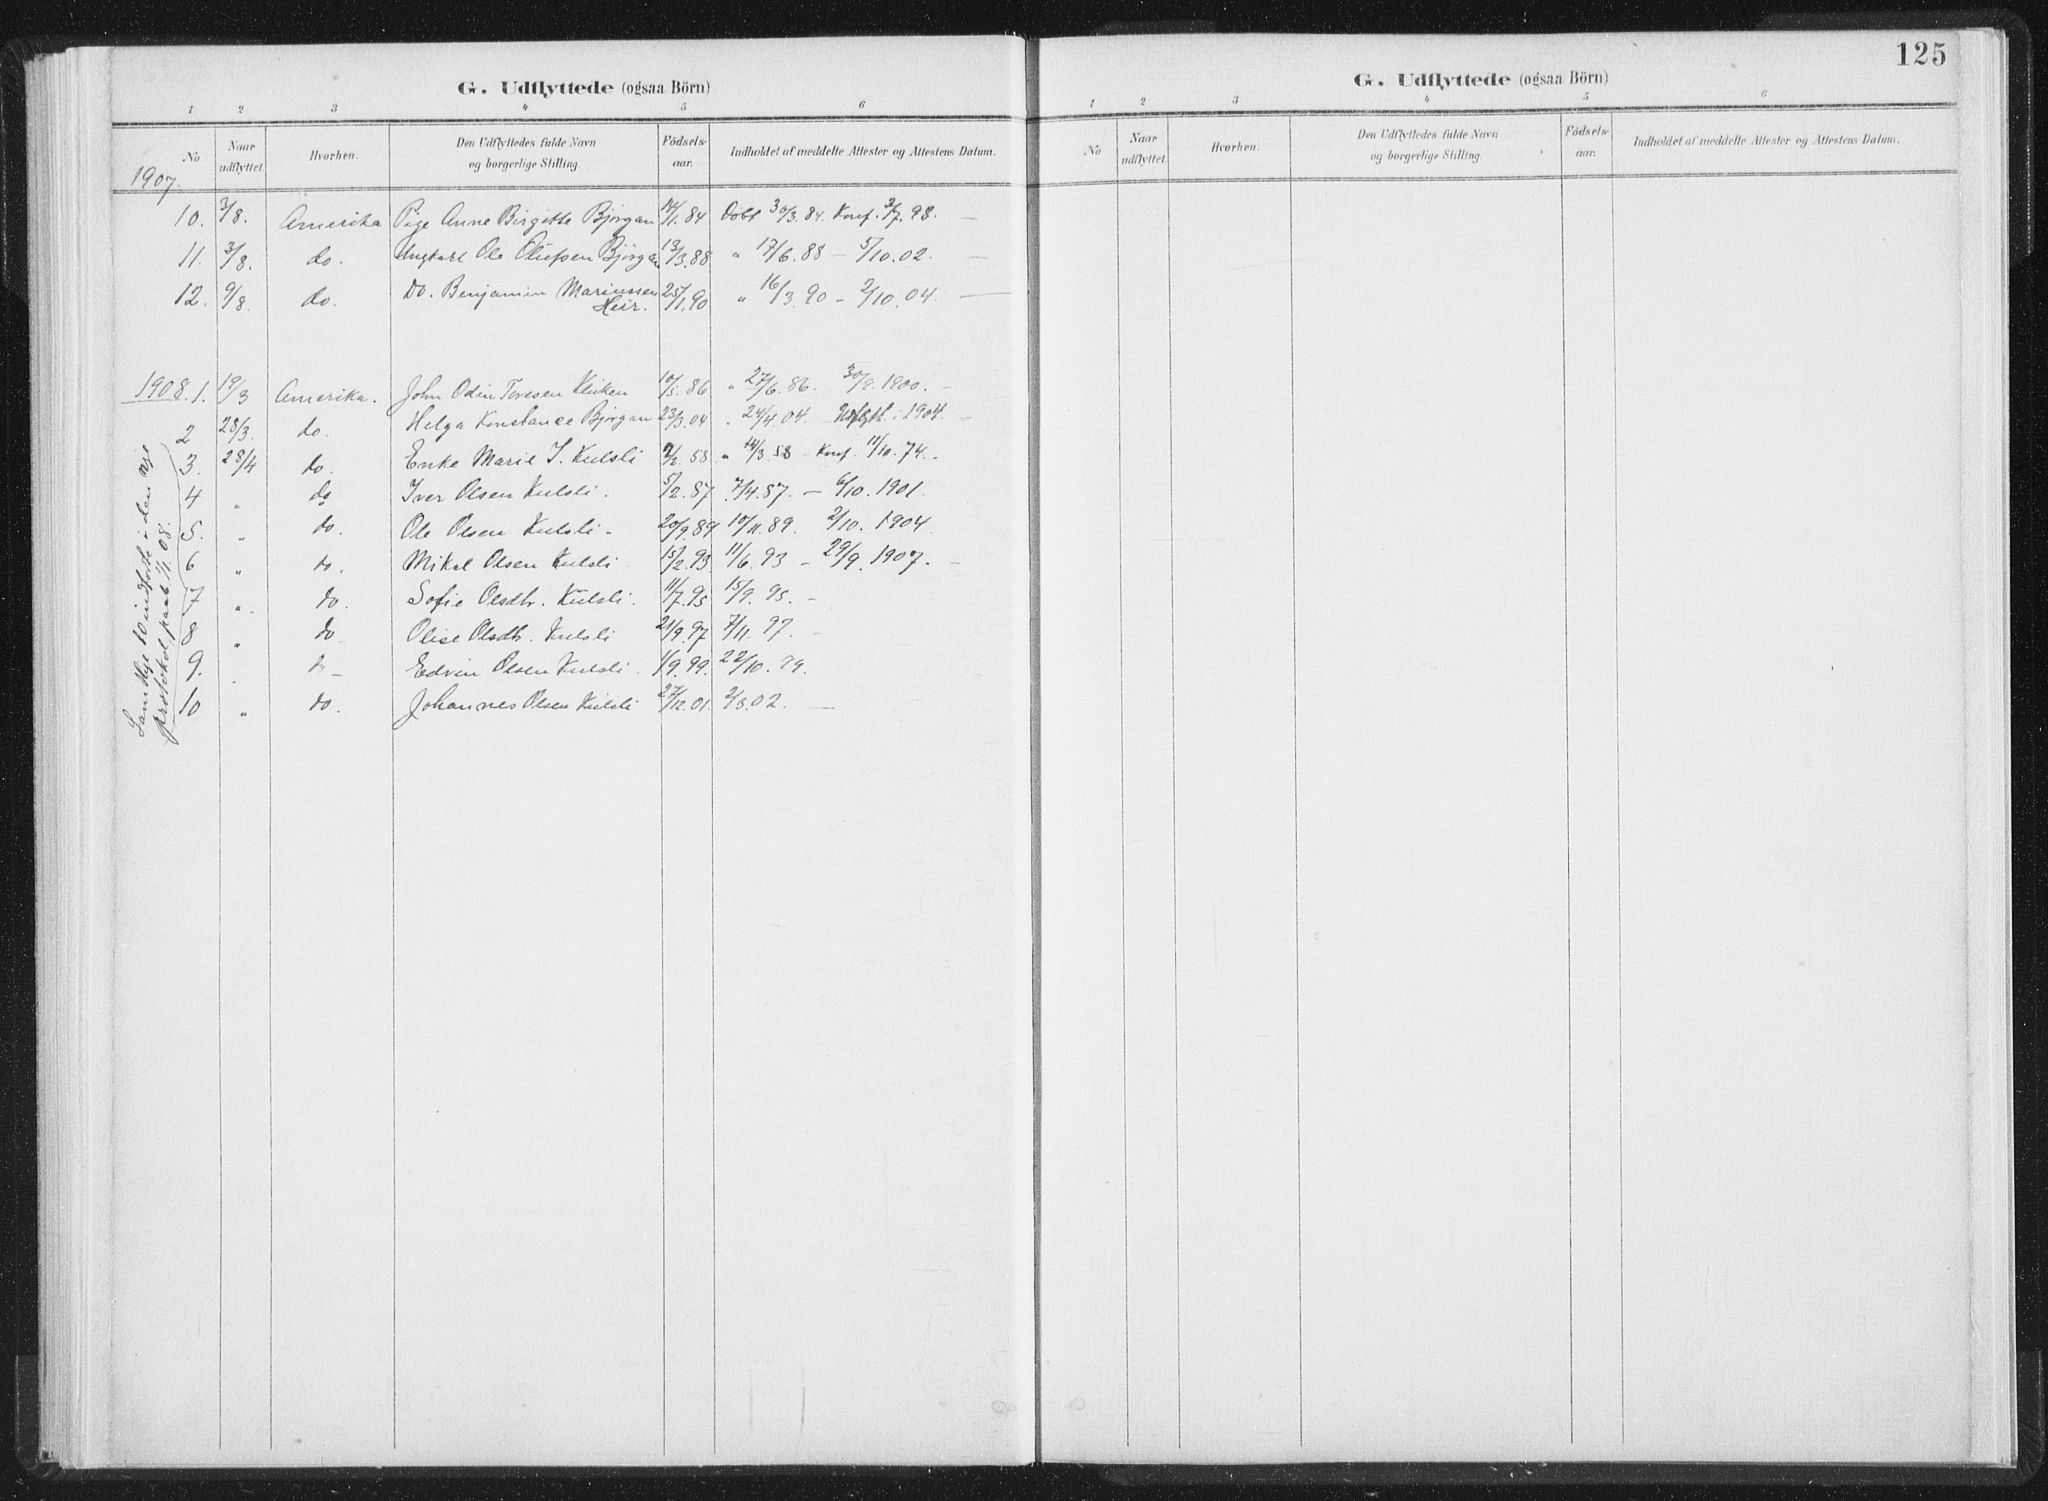 G. Udflyttede (ogsaa Börn)
1 2 3 4 5 6
No Naar udflyttet. Hvorhen. Den Udflyttedes fulde Navn og borgerlige Stilling. Födsels-aar. Indholdet af meddelte Attester og Attestens Datum.
1907.
10. 3/8. Amerika Pige Anne Birgitte Bjørgan 14/1.84 Døbt 30/3.84. Konf. 3/7.98. —
11. 3/8. do. Ungkarl Ole Olufsen Bjørgan 13/3.88 " 17/6.88 — 5/10.02. —
12. 9/8. do. Do. Benjamin Mariussen 25/1.90 " 16/3.90 — 2/10.04. —
Heir.
1908. 1. 19/3 Amerika. John Odin Toresen Kliken 10/5.86 " 27/6.86. 30/9.1900. —
2 28/3. do. Helga Konstance Bjørgan 23/3.04 " 24/4.04. i 1904. —
3. 28/4 do. Enke Marie I. Kulsli 9/2.58 " 14/3.58 — Konf. 11/10.74.
4 " do Iver Olsen Kulsli. 5/2.87 7/4.87. — 6/10.1901.
5. " do. Ole Olsen Kulsli. 20/9.89 10/11.89. 2/10.1904.
6 " do. Mikal Olsen Kulsli 15/2.93. 11/6.93 — 29/9.1907. —
7 " do. Sofie Olsdtr. Kulsli. 11/7.95 15/9.95. —
8 " do Olise Olsdtr. Kulsli 21/9.97 7/11.97. —
9. " do Edvin Olsen Kulsli. 1/9.99. 22/10.99.
10 " do. Johannes Olsen Kulsli 27/12.01. 2/3.02. —
Samtlige 10 indførte i den nye
protokol, paab. 1/1.08.
125
G. Udflyttede (ogsaa Börn)
1 2 3 4 5 6
No Naar udflyttet. Hvorhen. Den Udflyttedes fulde Navn og borgerlige Stilling. Födsels-aar. Indholdet af meddelte Attester og Attestens Datum.